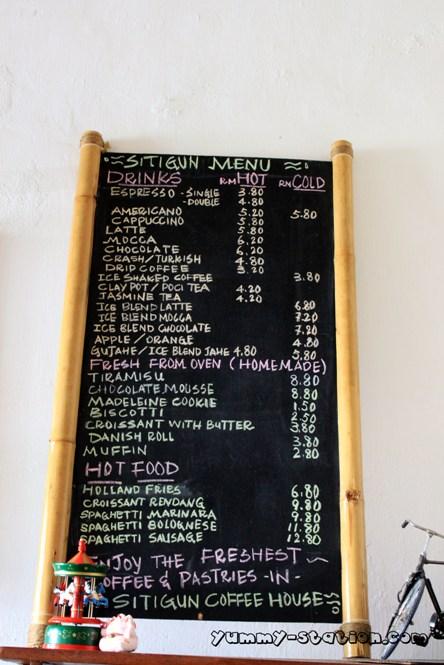 SITIGUN MENU
DRINKS RM HOT RM COLD
ESPRESSO - SINGLE 3.80
- DOUBLE 4.80
AMERICANO 5.20 5.80
CAPPUCCINO 5.80
LATTE 5.80
MOCCA 6.20
CHOCOLATE 6.20
CRASH/TURKISH 4.80
DRIP COFFEE 3.20
ICE SHAKED COFFEE 3.80
CLAY POT / POCI TEA 4.20
JASMINE TEA 4.20
ICE BLEND LATTE 6.80
ICE BLEND MOCCA 7.20
ICE BLEND CHOCOLATE 7.20
APPLE / ORANGE 4.80
GUJAHE/ICE BLEND JAHE 4.80 5.80
FRESH FROM OVEN (HOMEMADE)
TIRAMISU 8.80
CHOCOLATE MOUSSE 8.80
MADELEINE COOKIE 1.50
BISCOTTI 2.50
CROISSANT WITH BUTTER 3.80
DANISH ROLL 3.80
MUFFIN 2.80
HOT FOOD
HOLLAND FRIES 6.80
CROISSANT RENDANG 9.80
SPAGHETTI MARINARA 9.80
SPAGHETTI BOLOGNESE 11.80
SPAGHETTI SAUSAGE 12.80
NJOY THE FRESHEST
OFFEE & PASTRIES -IN-
SITIGUN COFFEE HOUSE
yummy-station.com